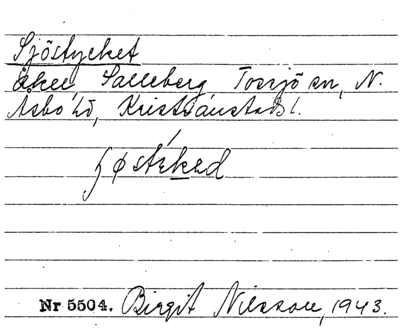 Sjöstycket
åker Salleberg Tossjö sn, N.
Åsbo hd, Kristianstads l.
Nr 5504. Birgit Nilsson, 1943.